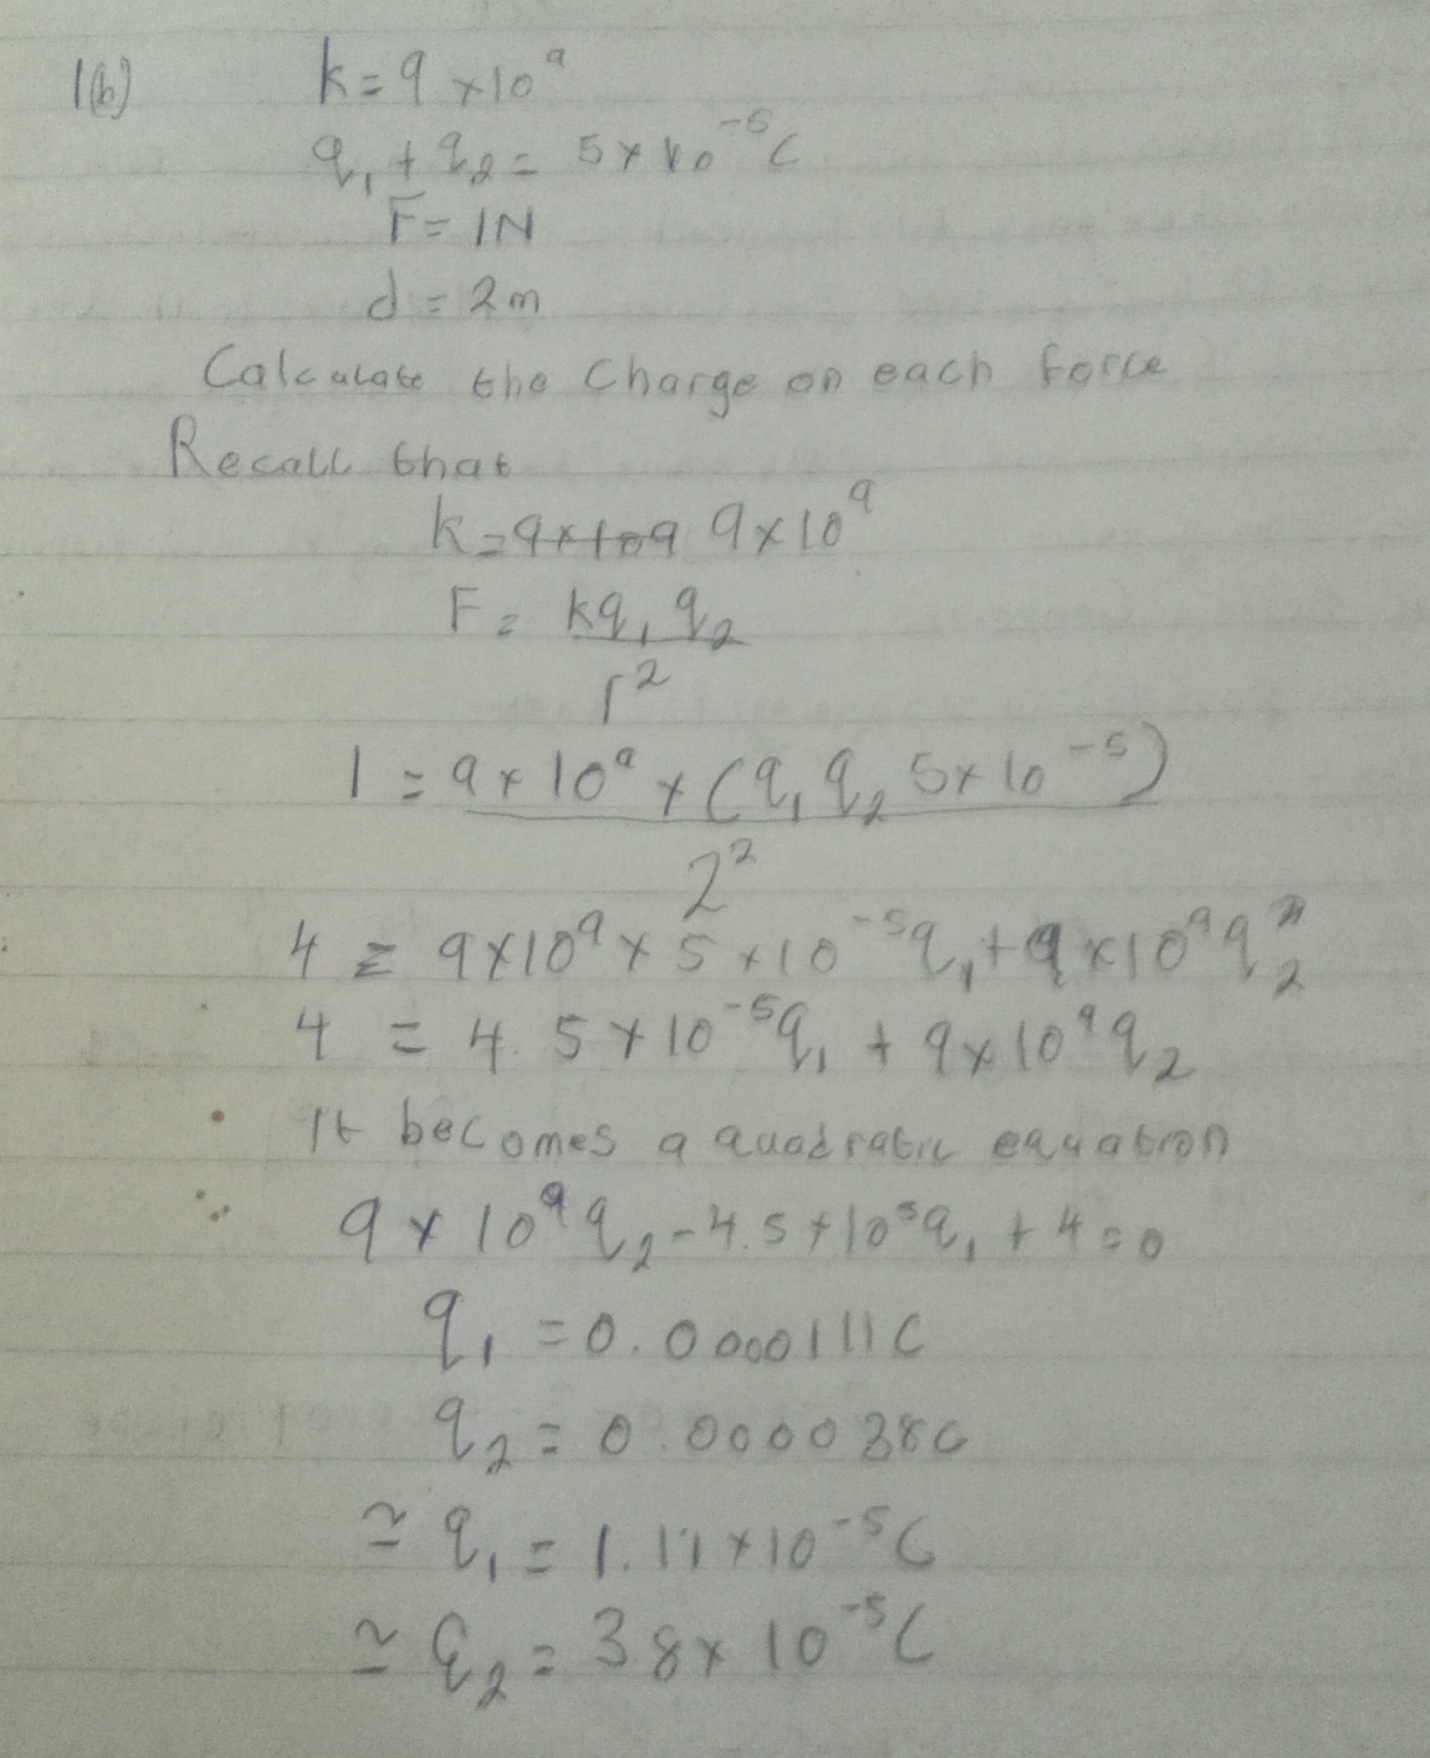 1(b) k = 9 × 10⁹
q₁ + q₂ = 5 × 10⁻⁵C
F = 1N
d = 2m
Calculate the Charge on each force
Recall that
k = 9×109 9 × 10⁹
F = kq₁ q₂
r²
1 = 9 × 10⁹ × (q₁ q₂ 5 × 10⁻⁵)
2²
4 = 9×10⁹ × 5 × 10⁻⁵q₁ + 9 × 10⁹ q₂²
4 = 4.5 × 10⁻⁵q₁ + 9×10⁹ q₂
It becomes a quadratic equation
∴ 9 × 10⁹ q₂ - 4.5 + 10⁵q₁ + 4 = 0
q₁ = 0.0000111C
q₂ = 0.000038C
≅ q₁ = 1.11 × 10⁻⁵C
≅ q₂ = 38 × 10⁻⁵C